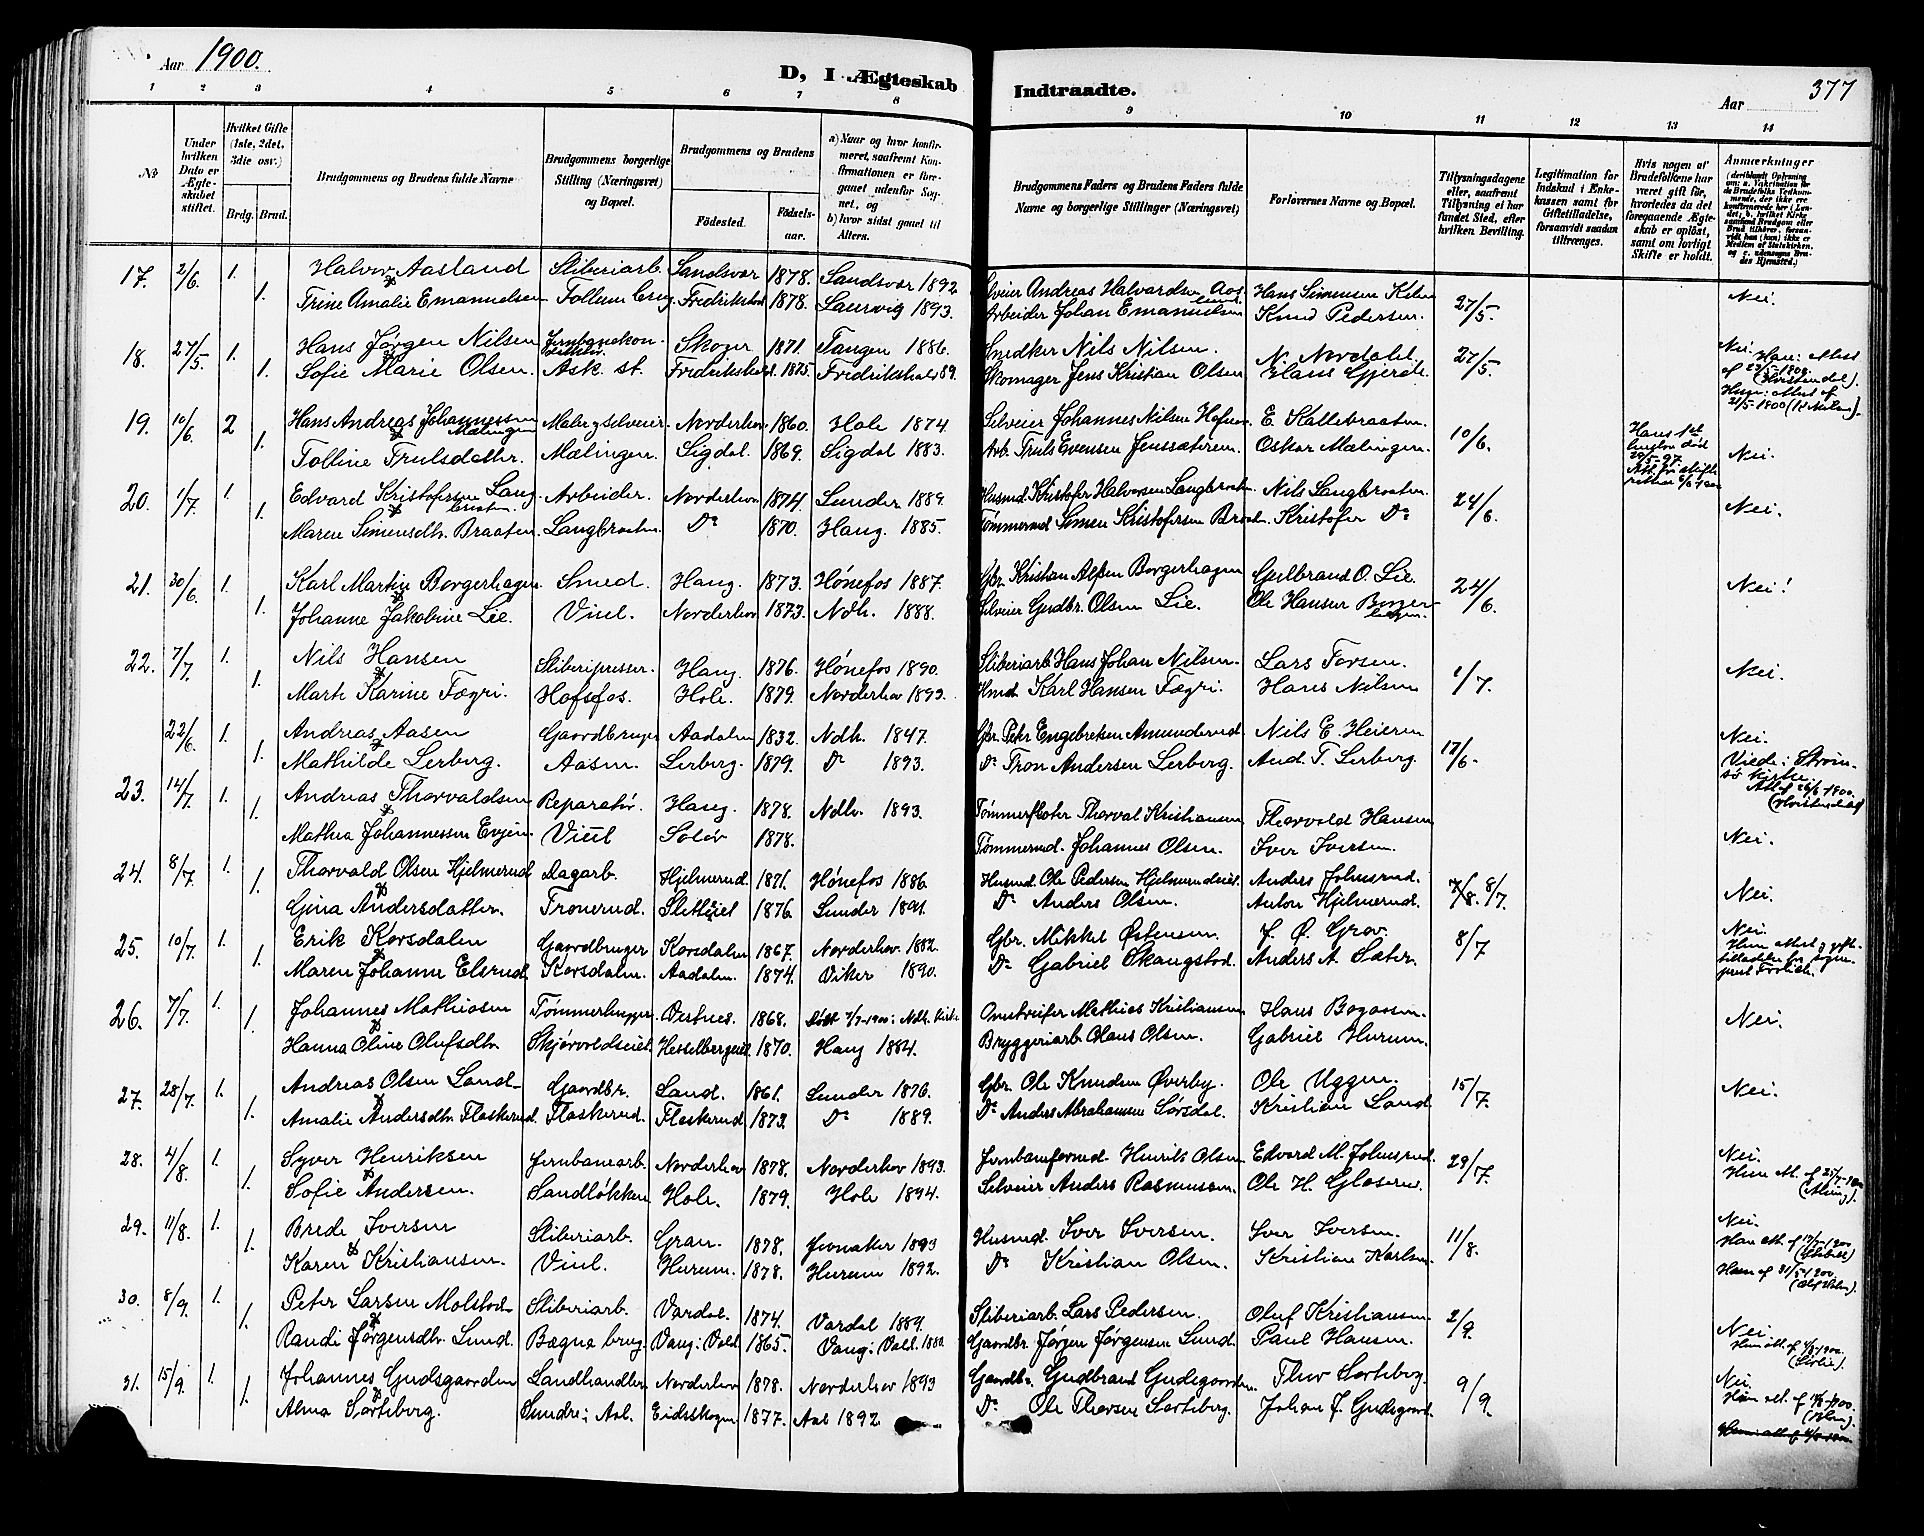 Aar 1900.
D, I Ægteskab
Indtraadte.
Aar
377
1 2 3 4 5 6 7 8 9 10 11 12 13 14
No
Under hvilken Dato er Ægteskabet stiftet.
Hvilket Gifte (1ste, 2det, 3die osv.)
Brdg. Brud.
Brudgommens og Brudens fulde Navne
Brudgommens borgerlige Stilling (Næringsvei) og Bopæl.
Brudgommens og Brudens
Fødested.
Fødsels-aar.
a) Naar og hvor konfirmeret, saafremt Konfirmationen er foregaaet udenfor Sognet, og
b) hvor sidst gaaet til Alters.
Brudgommens Faders og Brudens Faders fulde Navne og borgerlige Stillinger (Næringsvei)
Forlovernes Navne og Bopæl.
Tillysningsdagene eller, saafremt Tillysning ei har fundet Sted, efter hvilken Bevilling.
Legitimation for Indskud i Enkekassen samt for Giftetilladelse, forsaavidt saadan tiltrænges.
Hvis nogen af Brudefolkene har været gift før, hvorledes da det foregaaende Ægteskab er opløst, samt om lovligt Skifte er holdt.
Anmærkninger
17. 2/6 1. Halvor Aasland Sliberiarb. Sandsvær 1878. Sandsvær 1892 Hans Simensen 27/5. Nei.
1. Trine Amalie Emanuelsen Follum brug Fredrikshald 1878. Laurvig 1893. Arbeider Johan Emanuelsen Knud Pedersen.
18. 27/5. 1. Hans Jørgen Nilsen Skoger 1871. Tangen 1886. Snedker Nils Nilsen. N. Nordahl. 27/5. Nei.
1. Sofie Marie Olsen. Ask st. Fredrikshald. 1875. Fredrikshald 89. Skomager Jens Kristian Olsen Hans Gjerde
19. 10/6. 2 Hans Andreas Johannessen Mælingen Maler & selveier. Norderhov 1860. Hole 1874 Selveier Johannes Nilsen E. Kallebraaten 10/6. Nei.
1. Tolline Trulsdatter. Mælingen. Sigdal. 1869. Sigdal 1883. Arb. Truls Evensen Jenssæteren Oskar Mælingen.
20. 1/7. 1. Edvard Kristofersen Langbraaten. Arbeider. Norderhov 1874. Lunder 1889. Husmd. Kristofer Halvorsen Langbraaten Nils Langbraaten 24/6. Nei.
1. Maren Simensdtr. Braaten. Langbraaten Do 1870. Haug. 1885. Tømmermd. Simen Kristofersen Braaten. Kristofer Do
21. 30/6. 1. Karl Martin Borgerhagen. Smed. Haug. 1873. Hønefos 1887. Gbr. Kristian Borgerhagen Gulbrand O. Lie. 24/6. Nei!
1. Johanne Jakobine Lie. Viul. Norderhov 1873. Ndh. 1888. Selveier Gudbr. Olsen Lie. Ole Hansen
22. 7/7. 1. Nils Hansen Sliberipresser. Haug. 1876. Hønefos 1890. Sliberiarb. Hans Johan Nilsen. Lars Torsen. 1/7. Nei.
1. Marte Karine Fægri. Hofsfos. Hole. 1879. Norderhov 1893. Husmd. Karl Hansen Fægri. Hans Nilsen
22/6. 1. Andreas Aasen Gaardbruger Aadalen 1832. Ndh. 1847. Gbr. Peter Engebretsen Amunderud Nils E. Heieren 17/6. Nei.
1. Mathilde Lerberg. Aasen. Lerberg. 1879. Do 1893. Do Tron Andersen Lerberg. And. T. Lerberg. Viede i Strømsø kirke
23. 14/7. 1. Andreas Thorvaldsen Reparatør. Haug. 1878. Ndh. 1893. Tømmerfløter Thorval Kristiansen Thorvald Hansen
1. Mathea Johannessen Evjen Viul Solør 1878. Tømmermd. Johannes Olsen. Iver Iversen. Nei.
24. 8/7. 1. Thorvald Olsen Hjelmerud Dagarb. Hjelmerud. 1871. Hønefos 1886. Husmd. Ole Pedersen Hjelmerudeiet. Anders Johnsrud. 8/7. Nei.
1. Gina Andersdatter. Tronerud. Sletteeiet 1876. Lunder 1891. Do Anders Olsen. Anton Hjelmerud.
25. 10/7. 1. Erik Korsdalen Gaardbruger Korsdalen 1867. Norderhov. 1882. Gbr. Mikkel Østensen. J. Ø. Grov. 8/7 Nei.
1. Maren Johanne Elsrud. Korsdalen. Aadalen. 1874. Viker 1890. Do Gabriel Skaugstad. Anders A. Sæter.
26. 7/7. 1. Johannes Mathiasen Tømmerhugger. Østnes. 1868. Mathias Kristiansen Hans Bogaasen. Nei.
1. Hanna Oline Olufsdtr. Skjørvoldseiet. Hesselbergeiet 1870. Haug 1884. Bryggeriarb. Olaus Olsen. Gabriel Hurum.
27. 28/7. 1. Andreas Olsen Land Gaardbr. Land. 1861. Lunder 1876. Gbr. Ole Knudsen Øverby. Ole Uggen. 15/7. Nei.
1. Amalie Andersdtr. Flaskerud. Flaskerud. Flaskerud 1873. Do 1889. Do Anders Abrahamsen Sørsdal. Kristian Land
28. 4/8. 1. Syver Henriksen Jernbanearb. Norderhov 1878. Norderhov 1893. Jernbaneformd. Henrik Olsen. Edvard M. Johnsrud. 29/7. Nei.
1. Sofie Andersen. Sandløkken Hole. 1879. Hole 1894. Selveier Anders Rasmussen. Ole H. Gloserud.
29. 11/8. 1. Brede Iversen Sliberiarb. Gran. 1878. Jevnaker 1893 Husmd. Iver Iversen. Iver Iversen. 11/8. Nei.
1. Karen Kristiansen. Viul. Hurum. 1878. Hurum 1892. Do Kristian Olsen. Kristian Karlsen.
30. 8/9. 1. Peter Larsen Molstad Sliberiarb. Vardal. 1874. Vardal 1889. Sliberiarb. Lars Pedersen. Oluf Kristiansen 2/9.
1. Randi Jørgensdtr. Lund. Bægna brug. Vang i Vald. 1865. Vang i Vald. 1880. Gaardbr. Jørgen Jørgensen Lund. Paul Hansen. Nei.
31. 15/9. 1. Johannes Gudsgaarden Landhandler. Norderhov 1878. Norderhov 1893 Gaardbr. Gudbrand Gudsgaarden. Thor Sorteberg. 9/9. Nei.
1. Alma Sorteberg. Sundre i Aal. Eidsskogen 1877. Aal 1892 Do Ole Thorsen Sorteberg. Johan J. Gudsgaard.